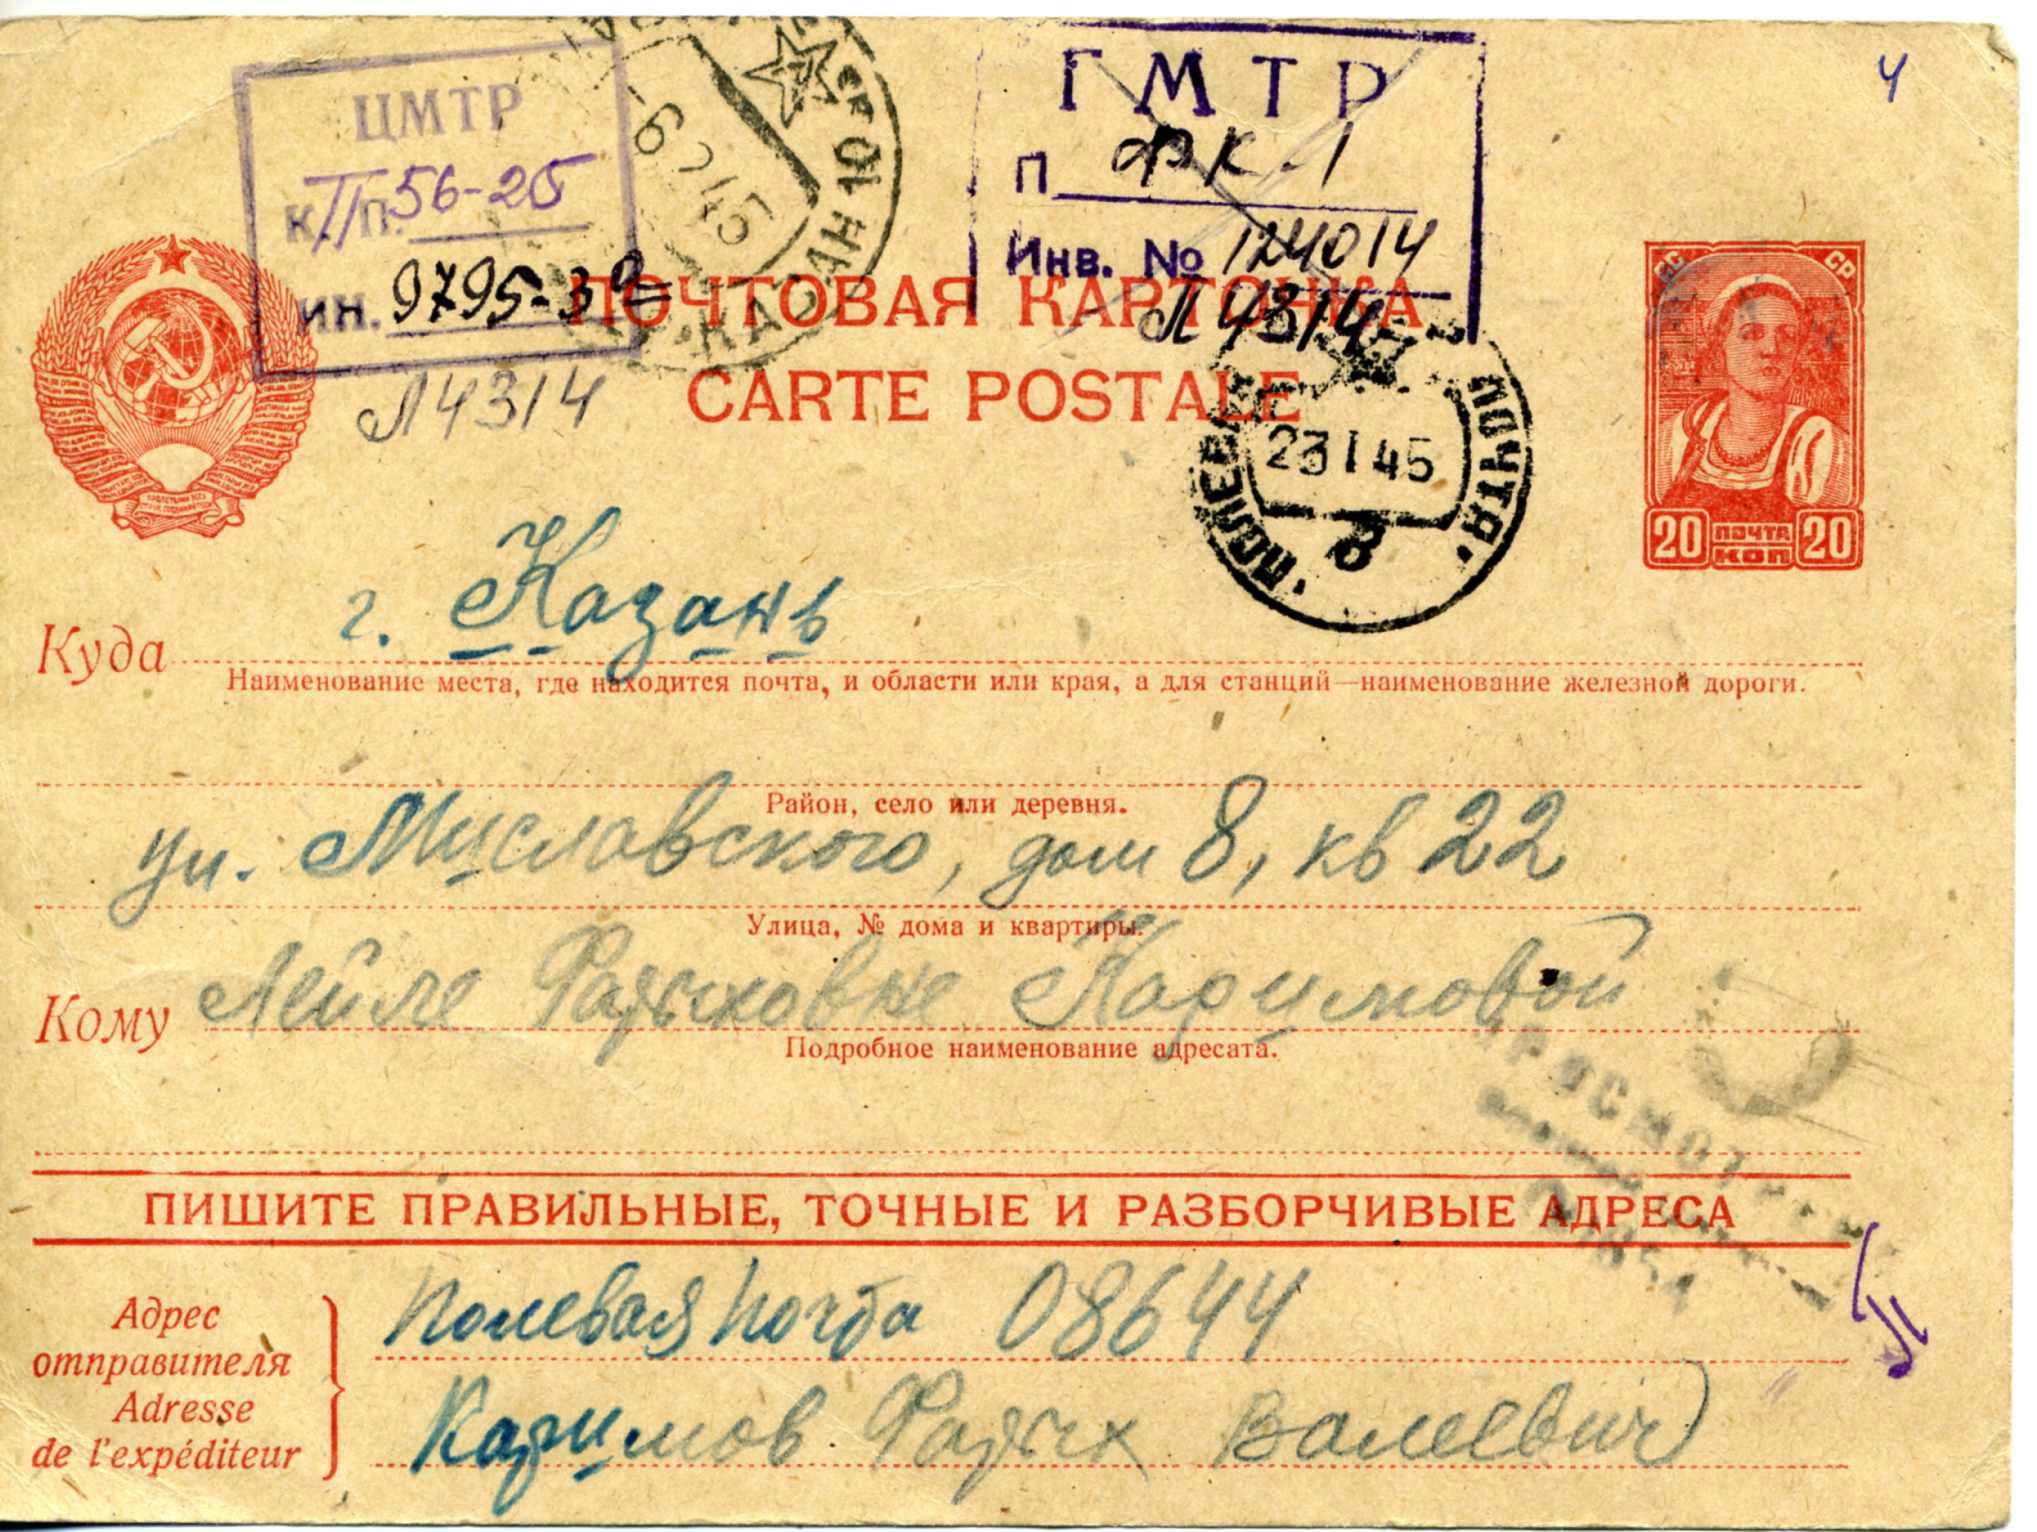 4
ЦМТР
К П. 56-25
ИН. 9795-39
Л4314
КАЗАН 10
-6 2 45
ГМТР
П ФК-1
Инв. № 124014
Л 4314
ПОЧТОВАЯ КАРТОЧКА
CARTE POSTALE
ПОЛЕВАЯ ПОЧТА
23 1 45
СССР
20 ПОЧТА КОП 20
Куда г. Казань
Наименование места, где находится почта, и области или края, а для станций—наименование железной дороги.
Район, село или деревня.
ул. Миславского, дом 8, кв 22
Улица, № дома и квартиры.
Кому Лейле Фатыховне Каримовой
Подробное наименование адресата.
ПИШИТЕ ПРАВИЛЬНЫЕ, ТОЧНЫЕ И РАЗБОРЧИВЫЕ АДРЕСА
Адрес отправителя
Adresse de l'expéditeur
Полевая почта 08644
Каримов Фатых Валеевич